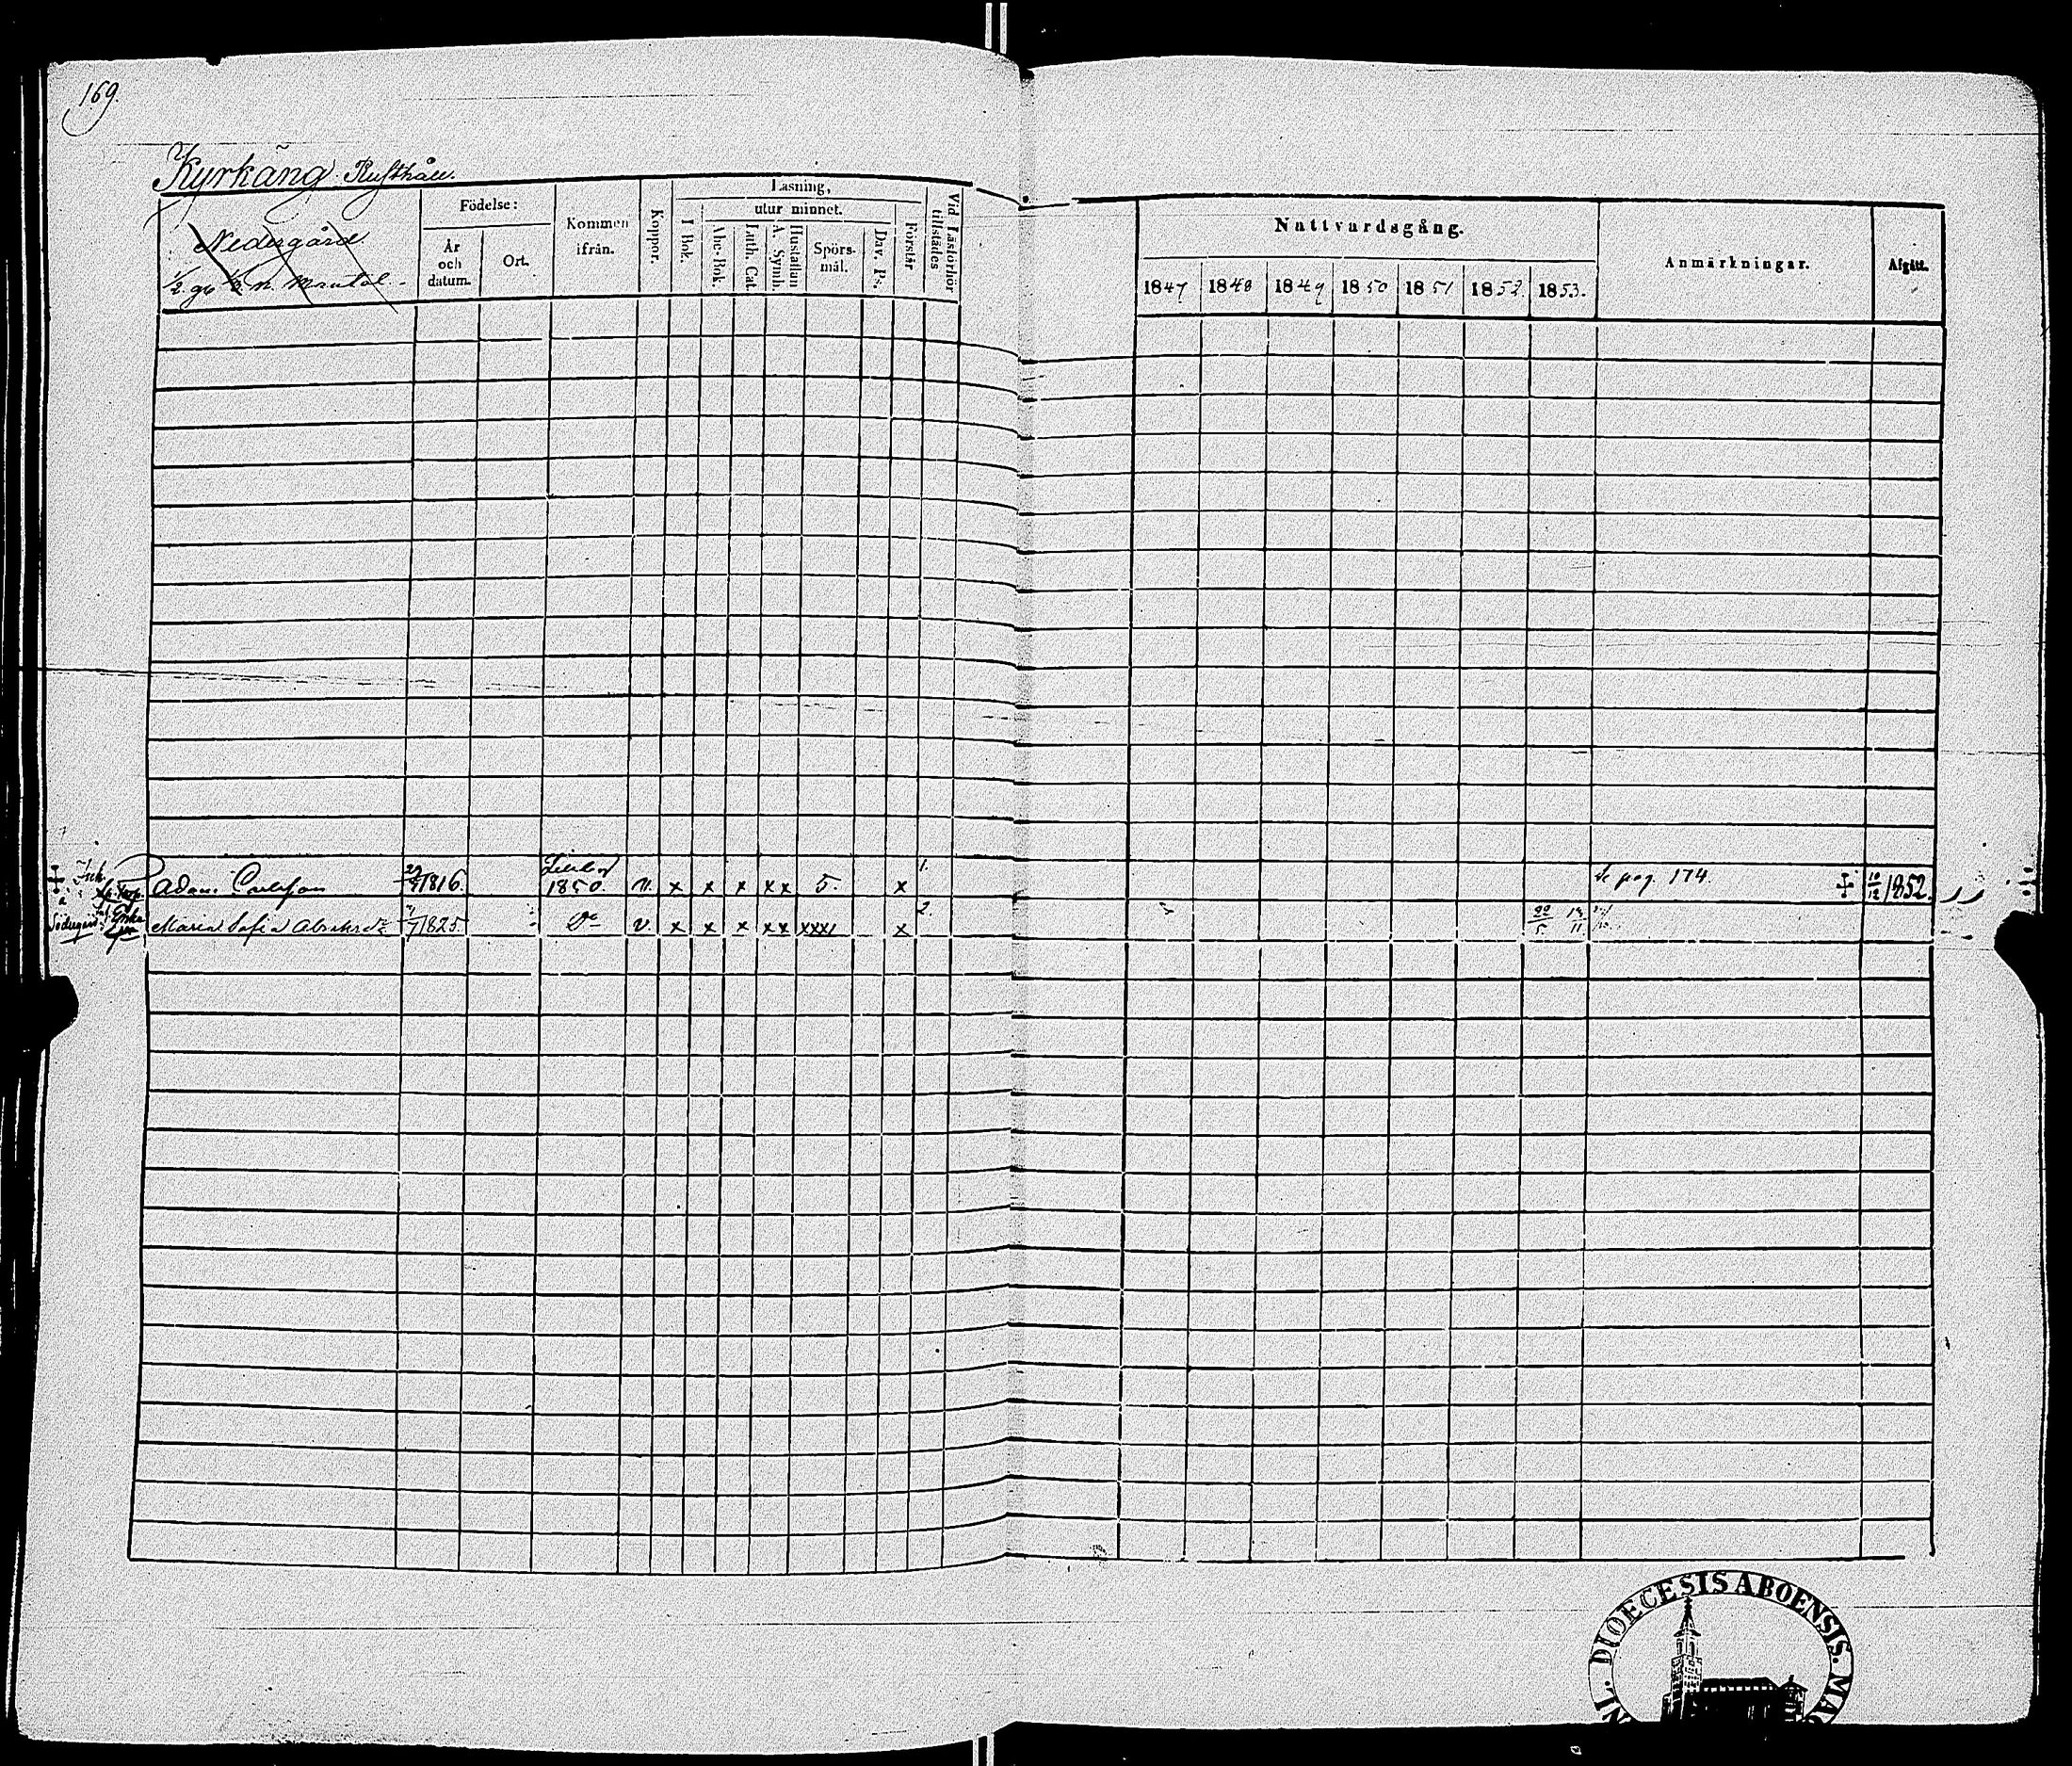 169.
Kyrkäng Rusthåll.
Nedergård.
1/2 gb 1/3 n. Mantal.
Födelse:
År och datum.
Ort.
Kommen ifrån.
Koppor.
Läsning,
I Bok.
utur minnet.
Abc-Bok.
Luth. Cat.
Hustaflan A. Symb.
Spörsmål.
Dav. Ps.
Förstår
Vid Läsförhör tillstädes
Nattvardsgång.
1847 1848 1849 1850 1851 1852. 1853.
Anmärkningar.
Afgått.
Adam Carlsson 1816. 1850. v. x x x x x 5. x 1. Se pag. 174. 10/12 1852.
Södergård Enka Maria Sofia Abrahsdr 1825. Do v. x x x x x xxxx x 2. 22/5
DIOECESIS ABOENSIS.